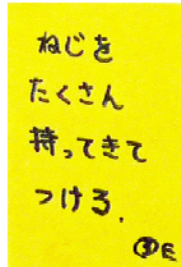 ねじを
たくさん
持ってきて
つける.